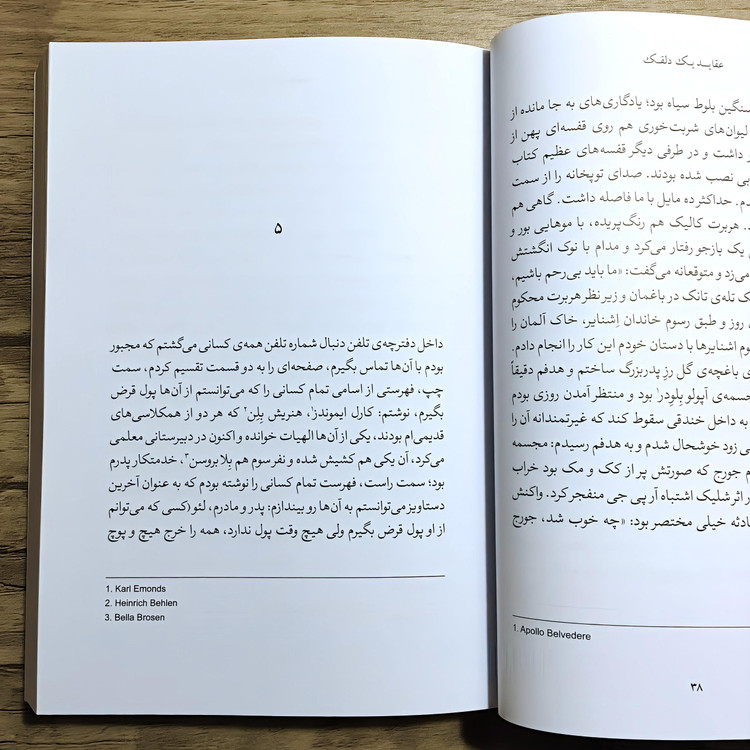 عقایـد یـک دلقـک
سنگین بلوط سیاه بود؛ یادگاری‌های به جا مانده از
لیوان‌های شربت‌خوری هم روی قفسه‌ای پهن از
داشت و در طرفی دیگر قفسه‌های عظیم کتاب
نصب شده بودند. صدای توپخانه را از سمت
حداکثر ده مایل با ما فاصله داشت. گاهی هم
هربرت کالیک هم رنگ‌پریده، با موهایی بور و
یک بازجو رفتار می‌کرد و مدام با نوک انگشتش
می‌زد و متوقعانه می‌گفت: «ما باید بی‌رحم باشیم،
تله‌ی تانک در باغمان و زیر نظر هربرت محکوم
روز و طبق رسوم خاندان اِشنایر، خاک آلمان را
اشنایرها با دستان خودم این کار را انجام دادم.
باغچه‌ی گل رزِ پدربزرگ ساختم و هدفم دقیقاً
آپولو بِلوِدِر۱ بود و منتظر آمدن روزی بودم
به داخل خندقی سقوط کند که غیرتمندانه آن را
زود خوشحال شدم و به هدفم رسیدم: مجسمه
جورج که صورتش پر از کک و مک بود خراب
اثر شلیک اشتباه آر پی جی منفجر کرد. واکنش
خیلی مختصر بود: «چه خوب شد، جورج
1. Apollo Belvedere
۳۸
۵
داخل دفترچه‌ی تلفن دنبال شماره تلفن همه‌ی کسانی می‌گشتم که مجبور
بودم با آن‌ها تماس بگیرم، صفحه‌ای را به دو قسمت تقسیم کردم، سمت
چپ، فهرستی از اسامی تمام کسانی را که می‌توانستم از آن‌ها پول قرض
بگیرم، نوشتم: کارل ایموندز۱، هنریش بِلِن۲ که هر دو از همکلاسی‌های
قدیمی‌ام بودند، یکی از آن‌ها الهیات خوانده و اکنون در دبیرستانی معلمی
می‌کرد، آن یکی هم کشیش شده و نفر سوم هم بِلا بروسن۳، خدمتکار پدرم
بود؛ سمت راست، فهرست تمام کسانی را نوشته بودم که به عنوان آخرین
دستاویز می‌توانستم به آن‌ها رو بیندازم: پدر و مادرم، لئو (کسی که می‌توانم
از او پول قرض بگیرم ولی هیچ وقت پول ندارد، همه را خرج هیچ و پوچ
1. Karl Emonds
2. Heinrich Behlen
3. Bella Brosen